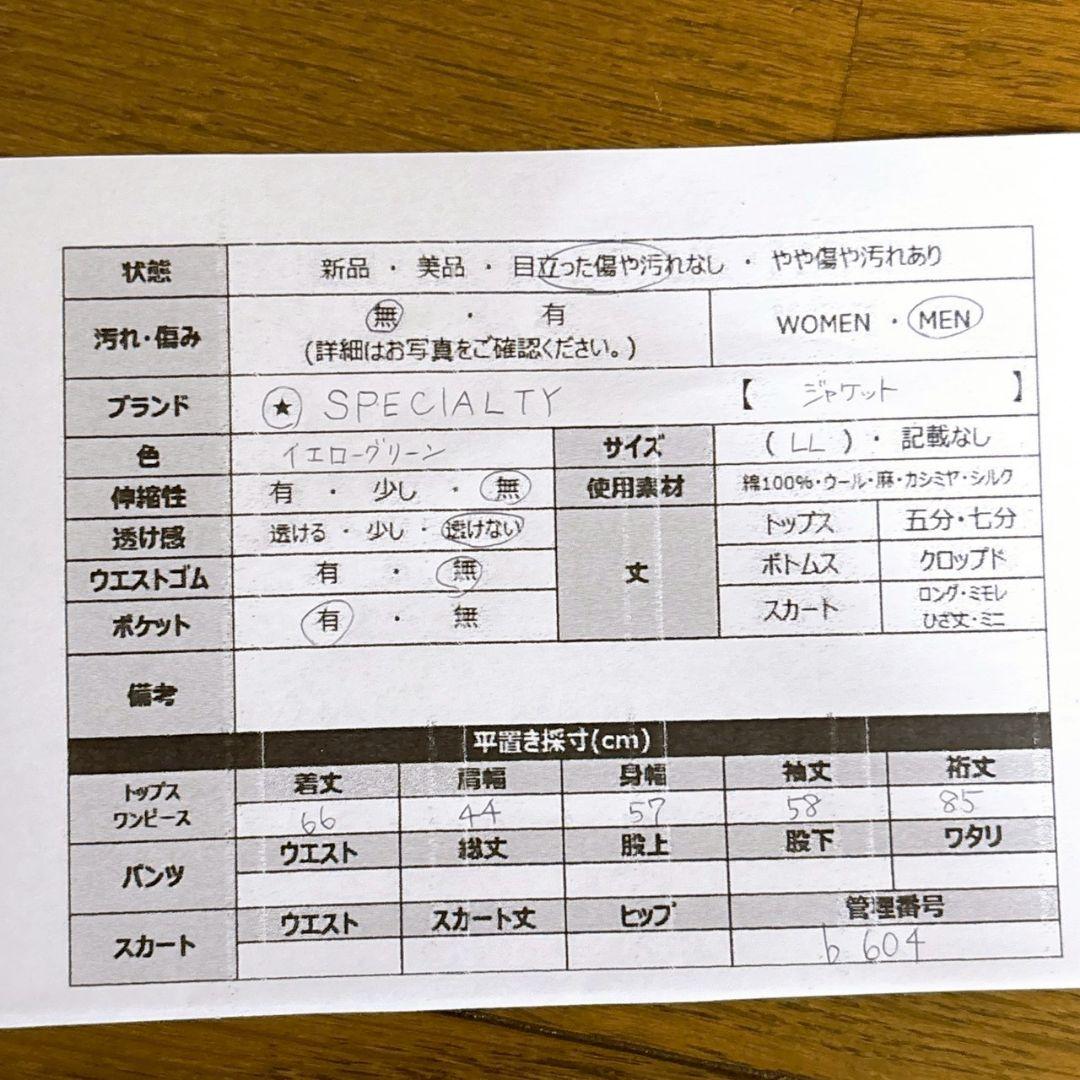 状態 新品 ・ 美品 ・ 目立った傷や汚れなし ・ やや傷や汚れあり
汚れ・傷み 無 ・ 有 WOMEN ・ MEN
(詳細はお写真をご確認ください。)
ブランド ★ SPECIALTY 【 ジャケット 】
色 イエローグリーン サイズ ( LL ) ・ 記載なし
伸縮性 有 ・ 少し ・ 無 使用素材 綿100%・ウール・麻・カシミヤ・シルク
透け感 透ける ・ 少し ・ 透けない 丈 トップス 五分・七分
ウエストゴム 有 ・ 無 ボトムス クロップド
ポケット 有 ・ 無 スカート ロング・ミモレ
ひざ丈・ミニ
備考
平置き採寸(cm)
トップス 着丈 肩幅 身幅 袖丈 裄丈
ワンピース 66 44 57 58 85
パンツ ウエスト 総丈 股上 股下 ワタリ
スカート ウエスト スカート丈 ヒップ 管理番号
b 604